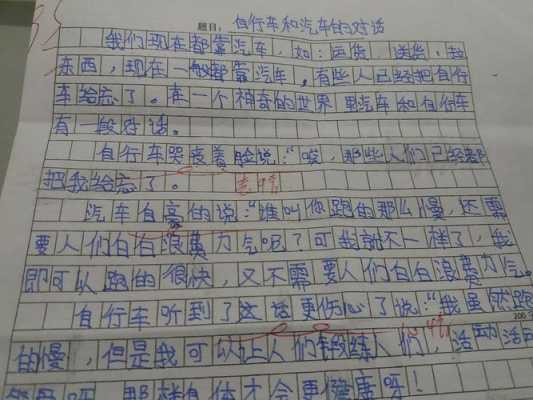 题目：自行车和汽车的对话
我们现在都靠汽车，如：运货、送货、拉
东西，现在一般都靠汽车。有些人已经把自行
车给忘了。在一个神奇的世界里汽车和自行车
有一段对话。
自行车哭丧着脸说：“唉，那些人们已经都
把我给忘了。
汽车自豪的说：“谁叫你跑的那么慢，还需
要人们白白浪费力气呢？可我就不一样了，我
即可以跑的很快，又不需要人们白白浪费力气。
自行车听到了这话更伤心了说：“我虽然跑
200
的慢，但是我可以让人们锻练人们，活动活动
那样身体才会更健康呀！